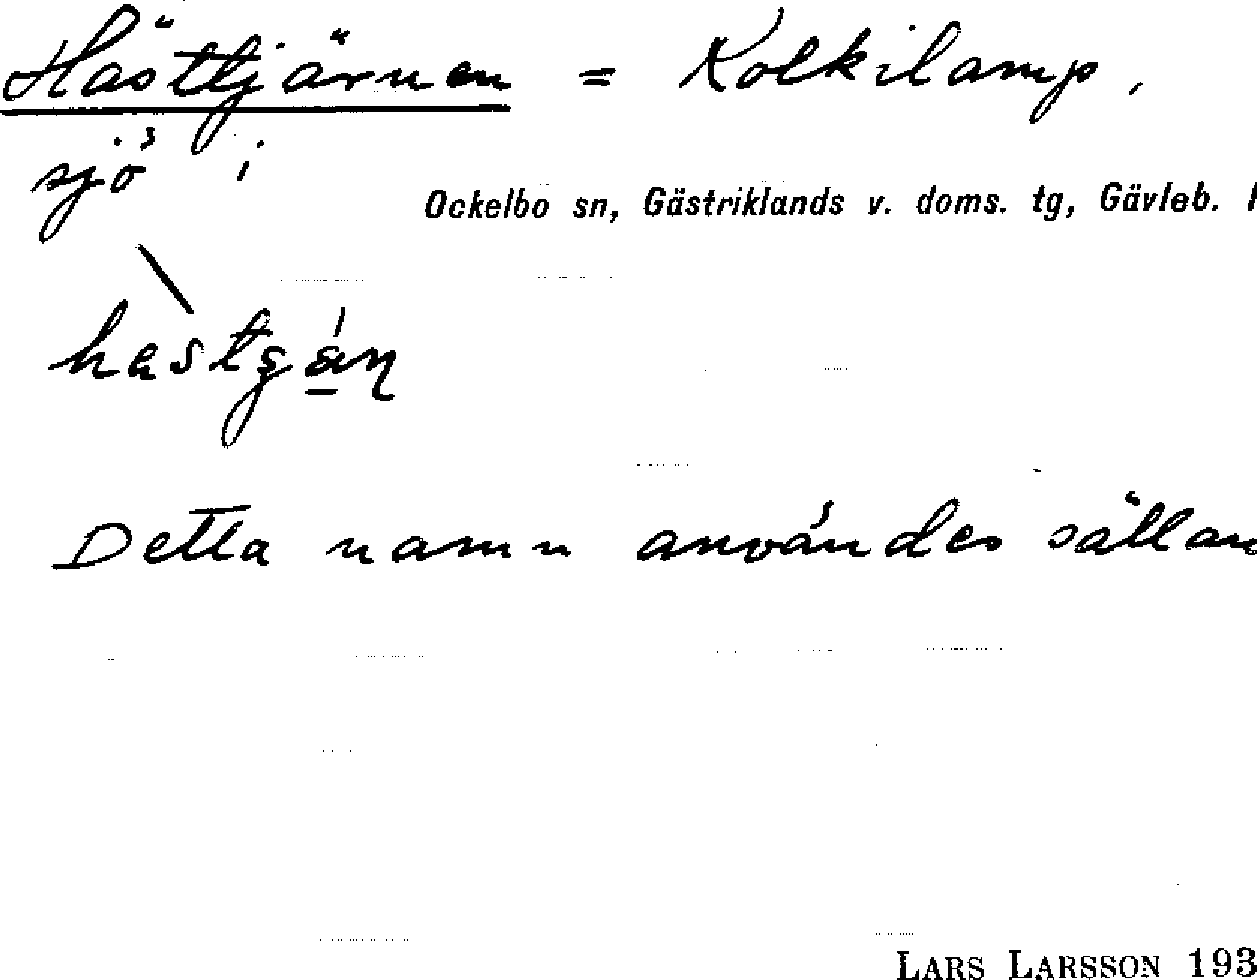 Hästtjärnen = Kolkilamp,
sjö i
Ockelbo sn, Gästriklands v. doms. tg, Gävleb.
Detta namn användes sällan
LARS LARSSON 193